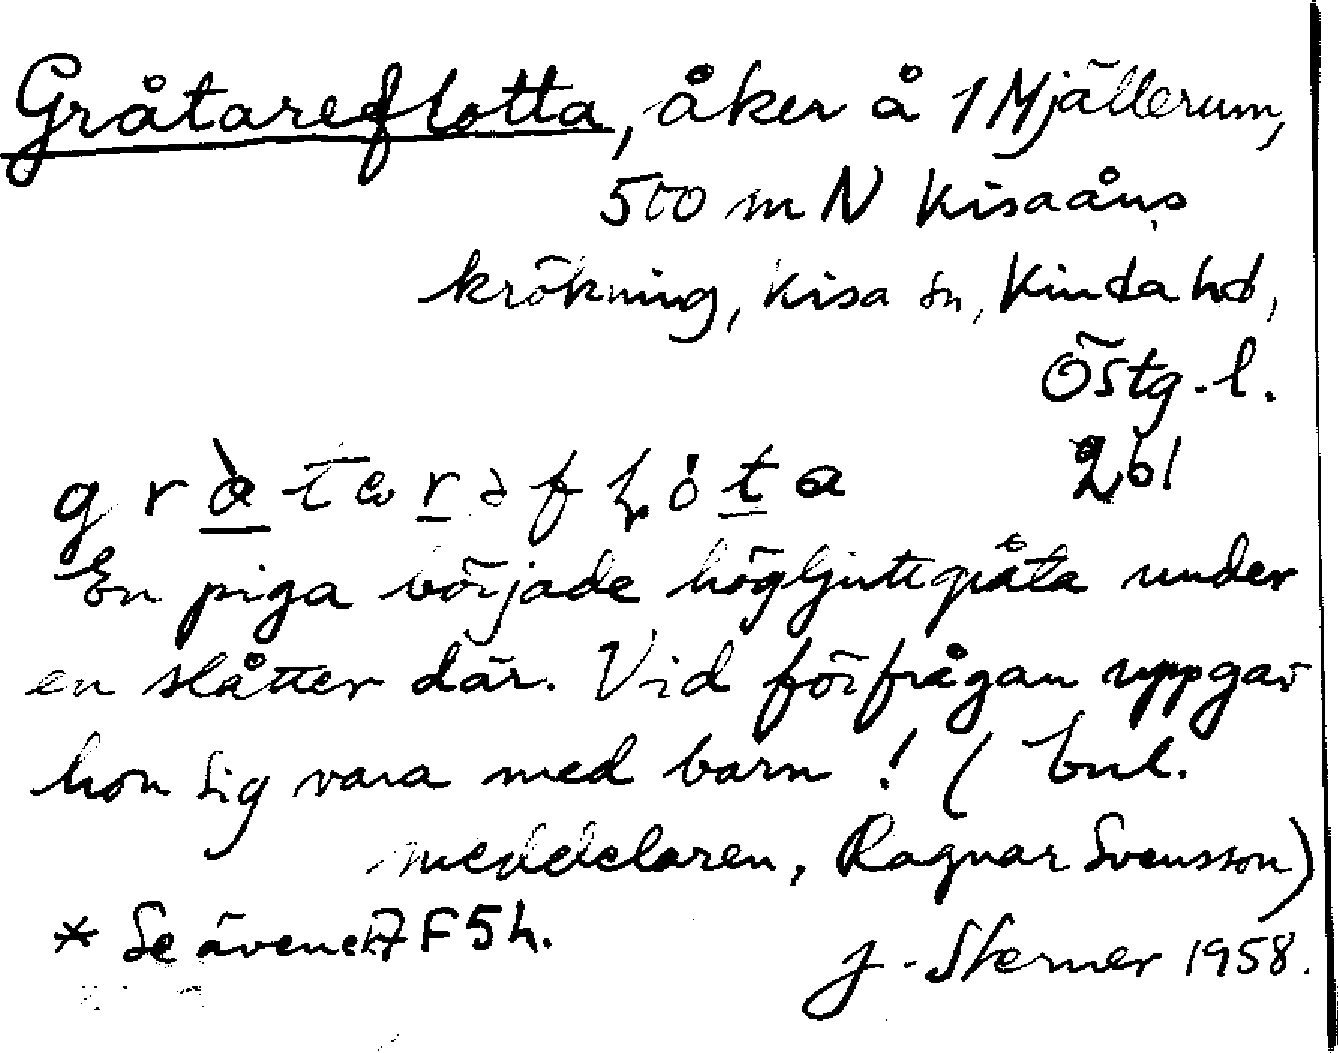 Gråtareflotta, åker å 1 Mjällerum,
500 m N Kisaåns
krökning, Kisa sn, Kinda hd,
Östg. l.
261
En piga började högljutt gråta under
en slåtter där. Vid förfrågan uppgav
hon sig vara med barn! (Enl.
meddelaren, Ragnar Svensson)
* Se även 7F5h.
J. Sterner 1958.